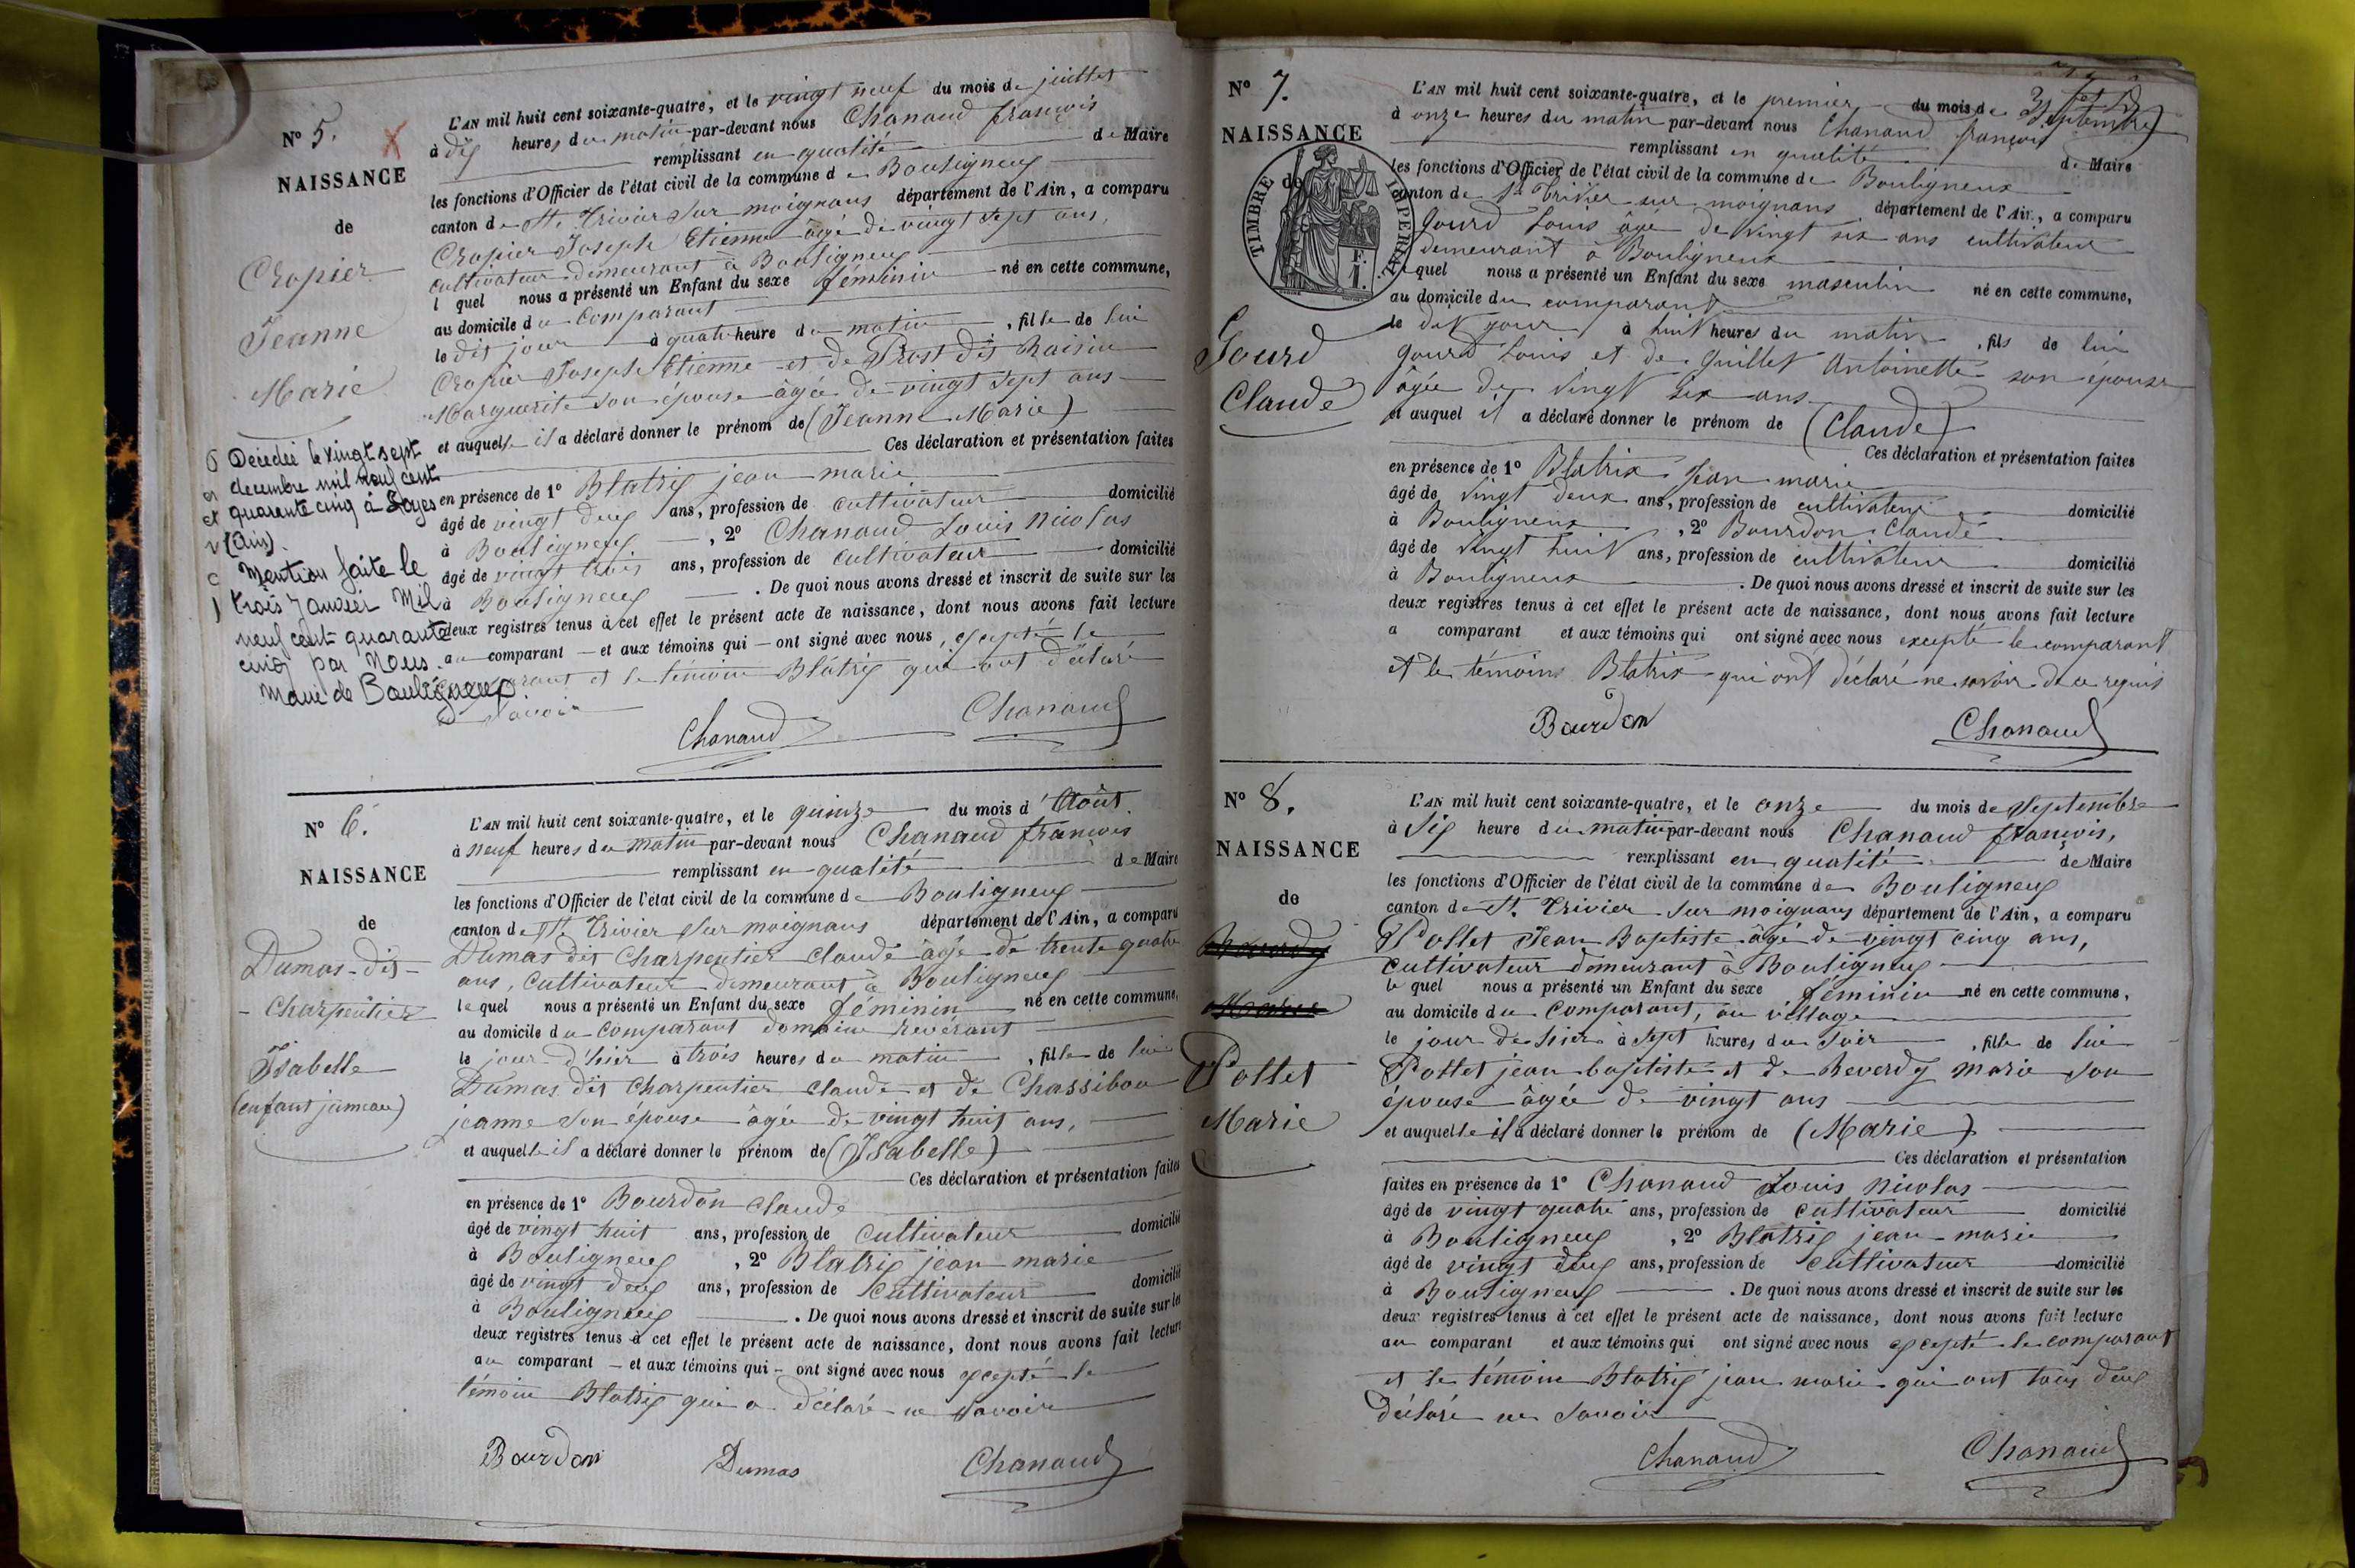 N° 5.
NAISSANCE
de
Cropier
Jeanne
Marie
Décédée le vingt sept
decembre mil neuf cent
quarante cinq à Loyes
(Ain).
Mention faite le
trois Janvier Mil
neuf cent quarante
cinq par Nous.
Maire de Bouligneux
L'AN mil huit cent soixante-quatre, et le vingt neuf du mois de juillet
à dix heures du matin par-devant nous Chanaud françois
remplissant en qualité de Maire
les fonctions d'Officier de l'état civil de la commune de Bouligneux
canton de St. Trivier sur moignans département de l'Ain, a comparu
Cropier Joseph Etienne âgé de vingt sept ans,
cultivateur demeurant à Bouligneux
l quel nous a présenté un Enfant du sexe féminin né en cette commune,
au domicile du comparant
le dit jour à quatre heure du matin, fille de lui
Cropier Joseph Etienne et de Prost dit Raisin
Marguerite son épouse âgée de vingt sept ans
et auquelle il a déclaré donner le prénom de (Jeanne Marie)
Ces déclaration et présentation faites
en présence de 1° Blatrix jean marie
âgé de vingt deux ans, profession de cultivateur domicilié
à Bouligneux, 2° Chanaud Louis Nicolas
âgé de vingt trois ans, profession de cultivateur domicilié
à Bouligneux. De quoi nous avons dressé et inscrit de suite sur les
deux registres tenus à cet effet le présent acte de naissance, dont nous avons fait lecture
au comparant — et aux témoins qui — ont signé avec nous, excepté le
comparant et le témoin Blatrix qui ont déclaré
ne savoir
Chanaud Chanaud
N° 6.
NAISSANCE
de
Dumas-dit-
-Charpentier
Isabelle
(enfant jumeau)
L'AN mil huit cent soixante-quatre, et le quinze du mois d'Août
à neuf heures du matin par-devant nous Chanaud françois
remplissant en qualité de Maire
les fonctions d'Officier de l'état civil de la commune de Bouligneux
canton de St. Trivier sur moignans département de l'Ain, a comparu
Dumas dit Charpentier claude âgé de trente quatre
ans, cultivateur demeurant à Bouligneux
lequel nous a présenté un Enfant du sexe féminin né en cette commune,
au domicile du comparant domaine
le jour d'hier à trois heures du matin, fille de lui
Dumas dit Charpentier claude et de Chassibou
jeanne son épouse âgée de vingt huit ans,
et auquelle il a déclaré donner le prénom de (Isabelle)
Ces déclaration et présentation faites
en présence de 1° Bourdon claude
âgé de vingt huit ans, profession de cultivateur domicilié
à Bouligneux, 2° Blatrix jean marie
âgé de vingt deux ans, profession de cultivateur domicilié
à Bouligneux. De quoi nous avons dressé et inscrit de suite sur les
deux registres tenus à cet effet le présent acte de naissance, dont nous avons fait lecture
au comparant — et aux témoins qui — ont signé avec nous excepté le
témoin Blatrix qui a déclaré ne savoir
Bourdon Dumas Chanaud
N° 7.
NAISSANCE
de
TIMBRE IMPERIAL
F.
1.
Gourd
Claude
L'AN mil huit cent soixante-quatre, et le premier du mois de Septembre
à onze heures du matin par-devant nous Chanaud françois
remplissant en qualité de Maire
les fonctions d'Officier de l'état civil de la commune de Bouligneux
canton de St Trivier sur moignans département de l'Ain, a comparu
Gourd Louis âgé de vingt six ans cultivateur
demeurant à Bouligneux
lequel nous a présenté un Enfant du sexe masculin né en cette commune,
au domicile du comparant
le dit jour à huit heures du matin, fils de lui
Gourd Louis et de Guillet Antoinette son épouse
âgée de vingt six ans
et auquel il a déclaré donner le prénom de (Claude)
Ces déclaration et présentation faites
en présence de 1° Blatrix Jean marie
âgé de vingt deux ans, profession de cultivateur domicilié
à Bouligneux, 2° Bourdon Claude
âgé de vingt huit ans, profession de cultivateur domicilié
à Bouligneux. De quoi nous avons dressé et inscrit de suite sur les
deux registres tenus à cet effet le présent acte de naissance, dont nous avons fait lecture
a comparant et aux témoins qui ont signé avec nous excepté le comparant
et le témoins Blatrix qui ont déclaré ne savoir de ce requis
Bourdon Chanaud
N° 8.
NAISSANCE
de
Pollet
Marie
L'AN mil huit cent soixante-quatre, et le onze du mois de Septembre
à Six heure du matin par-devant nous Chanaud François,
remplissant en qualité de Maire
les fonctions d'Officier de l'état civil de la commune de Bouligneux
canton de St. Trivier sur moignans département de l'Ain, a comparu
Pollet Jean Baptiste âgé de vingt cinq ans,
cultivateur demeurant à Bouligneux
le quel nous a présenté un Enfant du sexe féminin né en cette commune,
au domicile du comparant, au village
le jour de hier à sept heures du soir, fille de lui
Pollet jean baptiste et de Reverdy marie son
épouse âgée de vingt ans
et auquelle il a déclaré donner le prénom de (Marie)
Ces déclaration et présentation
faites en présence de 1° Chanaud Louis Nicolas
âgé de vingt quatre ans, profession de cultivateur domicilié
à Bouligneux, 2° Blatrix jean-marie
âgé de vingt deux ans, profession de cultivateur domicilié
à Bouligneux. De quoi nous avons dressé et inscrit de suite sur les
deux registres tenus à cet effet le présent acte de naissance, dont nous avons fait lecture
au comparant et aux témoins qui ont signé avec nous excepté le comparant
et le témoin Blatrix jean marie qui ont tous deux
déclaré ne savoir
Chanaud Chanaud